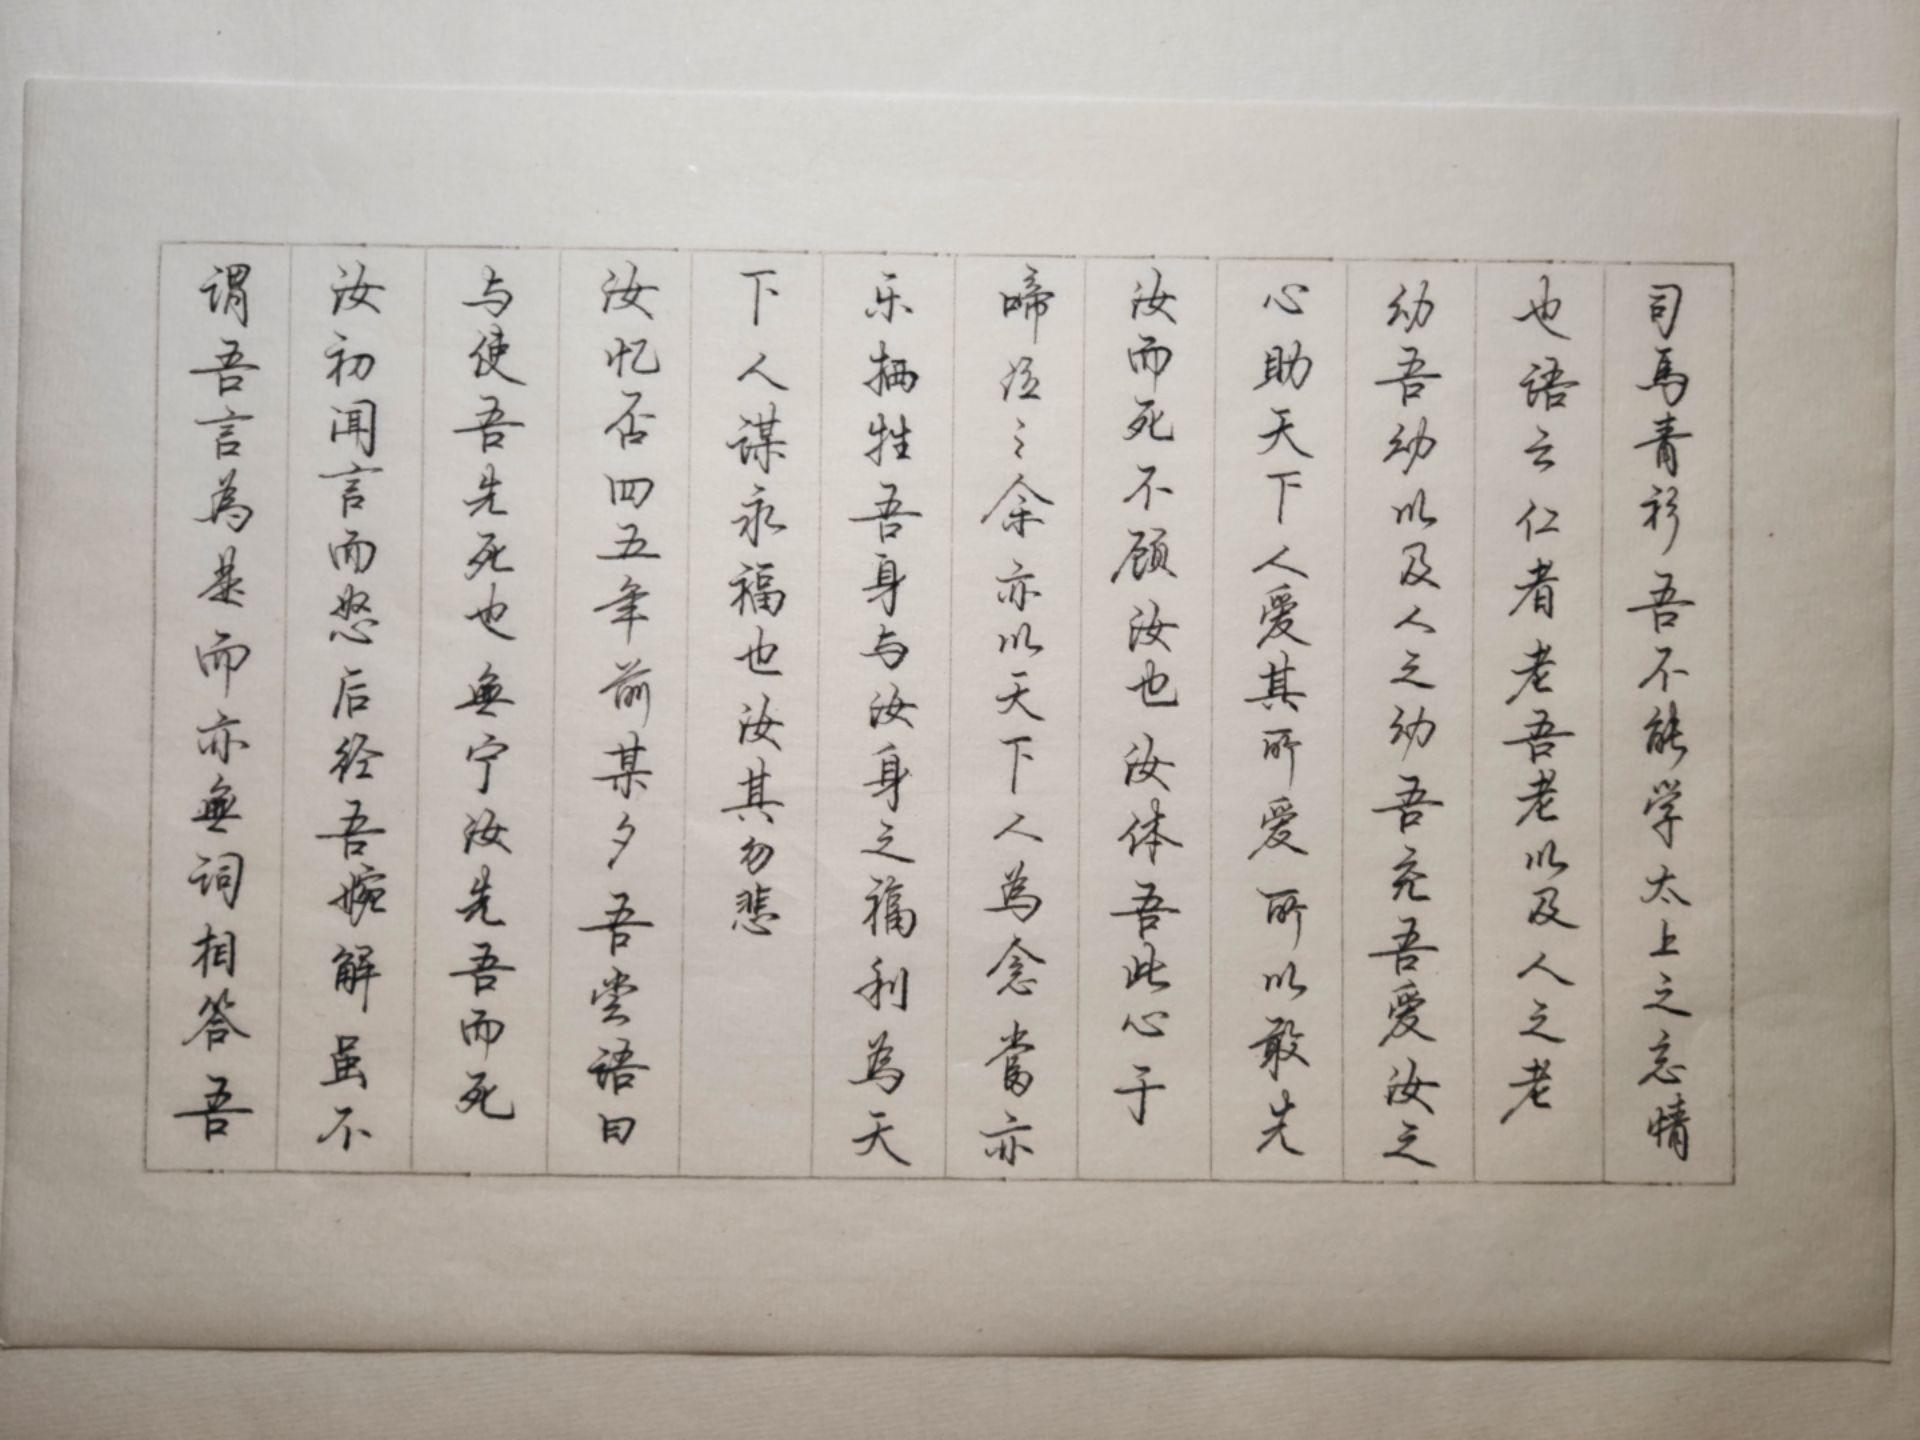 司馬青衫吾不能学太上之忘情
也语云仁者老吾老以及人之老
幼吾幼以及人之幼吾充吾爱汝之
心助天下人爱其所爱所以敢先
汝而死不顾汝也汝体吾此心于
啼泣之余亦以天下人為念當亦
乐牺牲吾身与汝身之福利為天
下人谋永福也汝其勿悲
汝忆否四五年前某夕吾尝语曰
与使吾先死也無宁汝先吾而死
汝初闻言而怒后经吾婉解虽不
谓吾言為是而亦無词相答吾